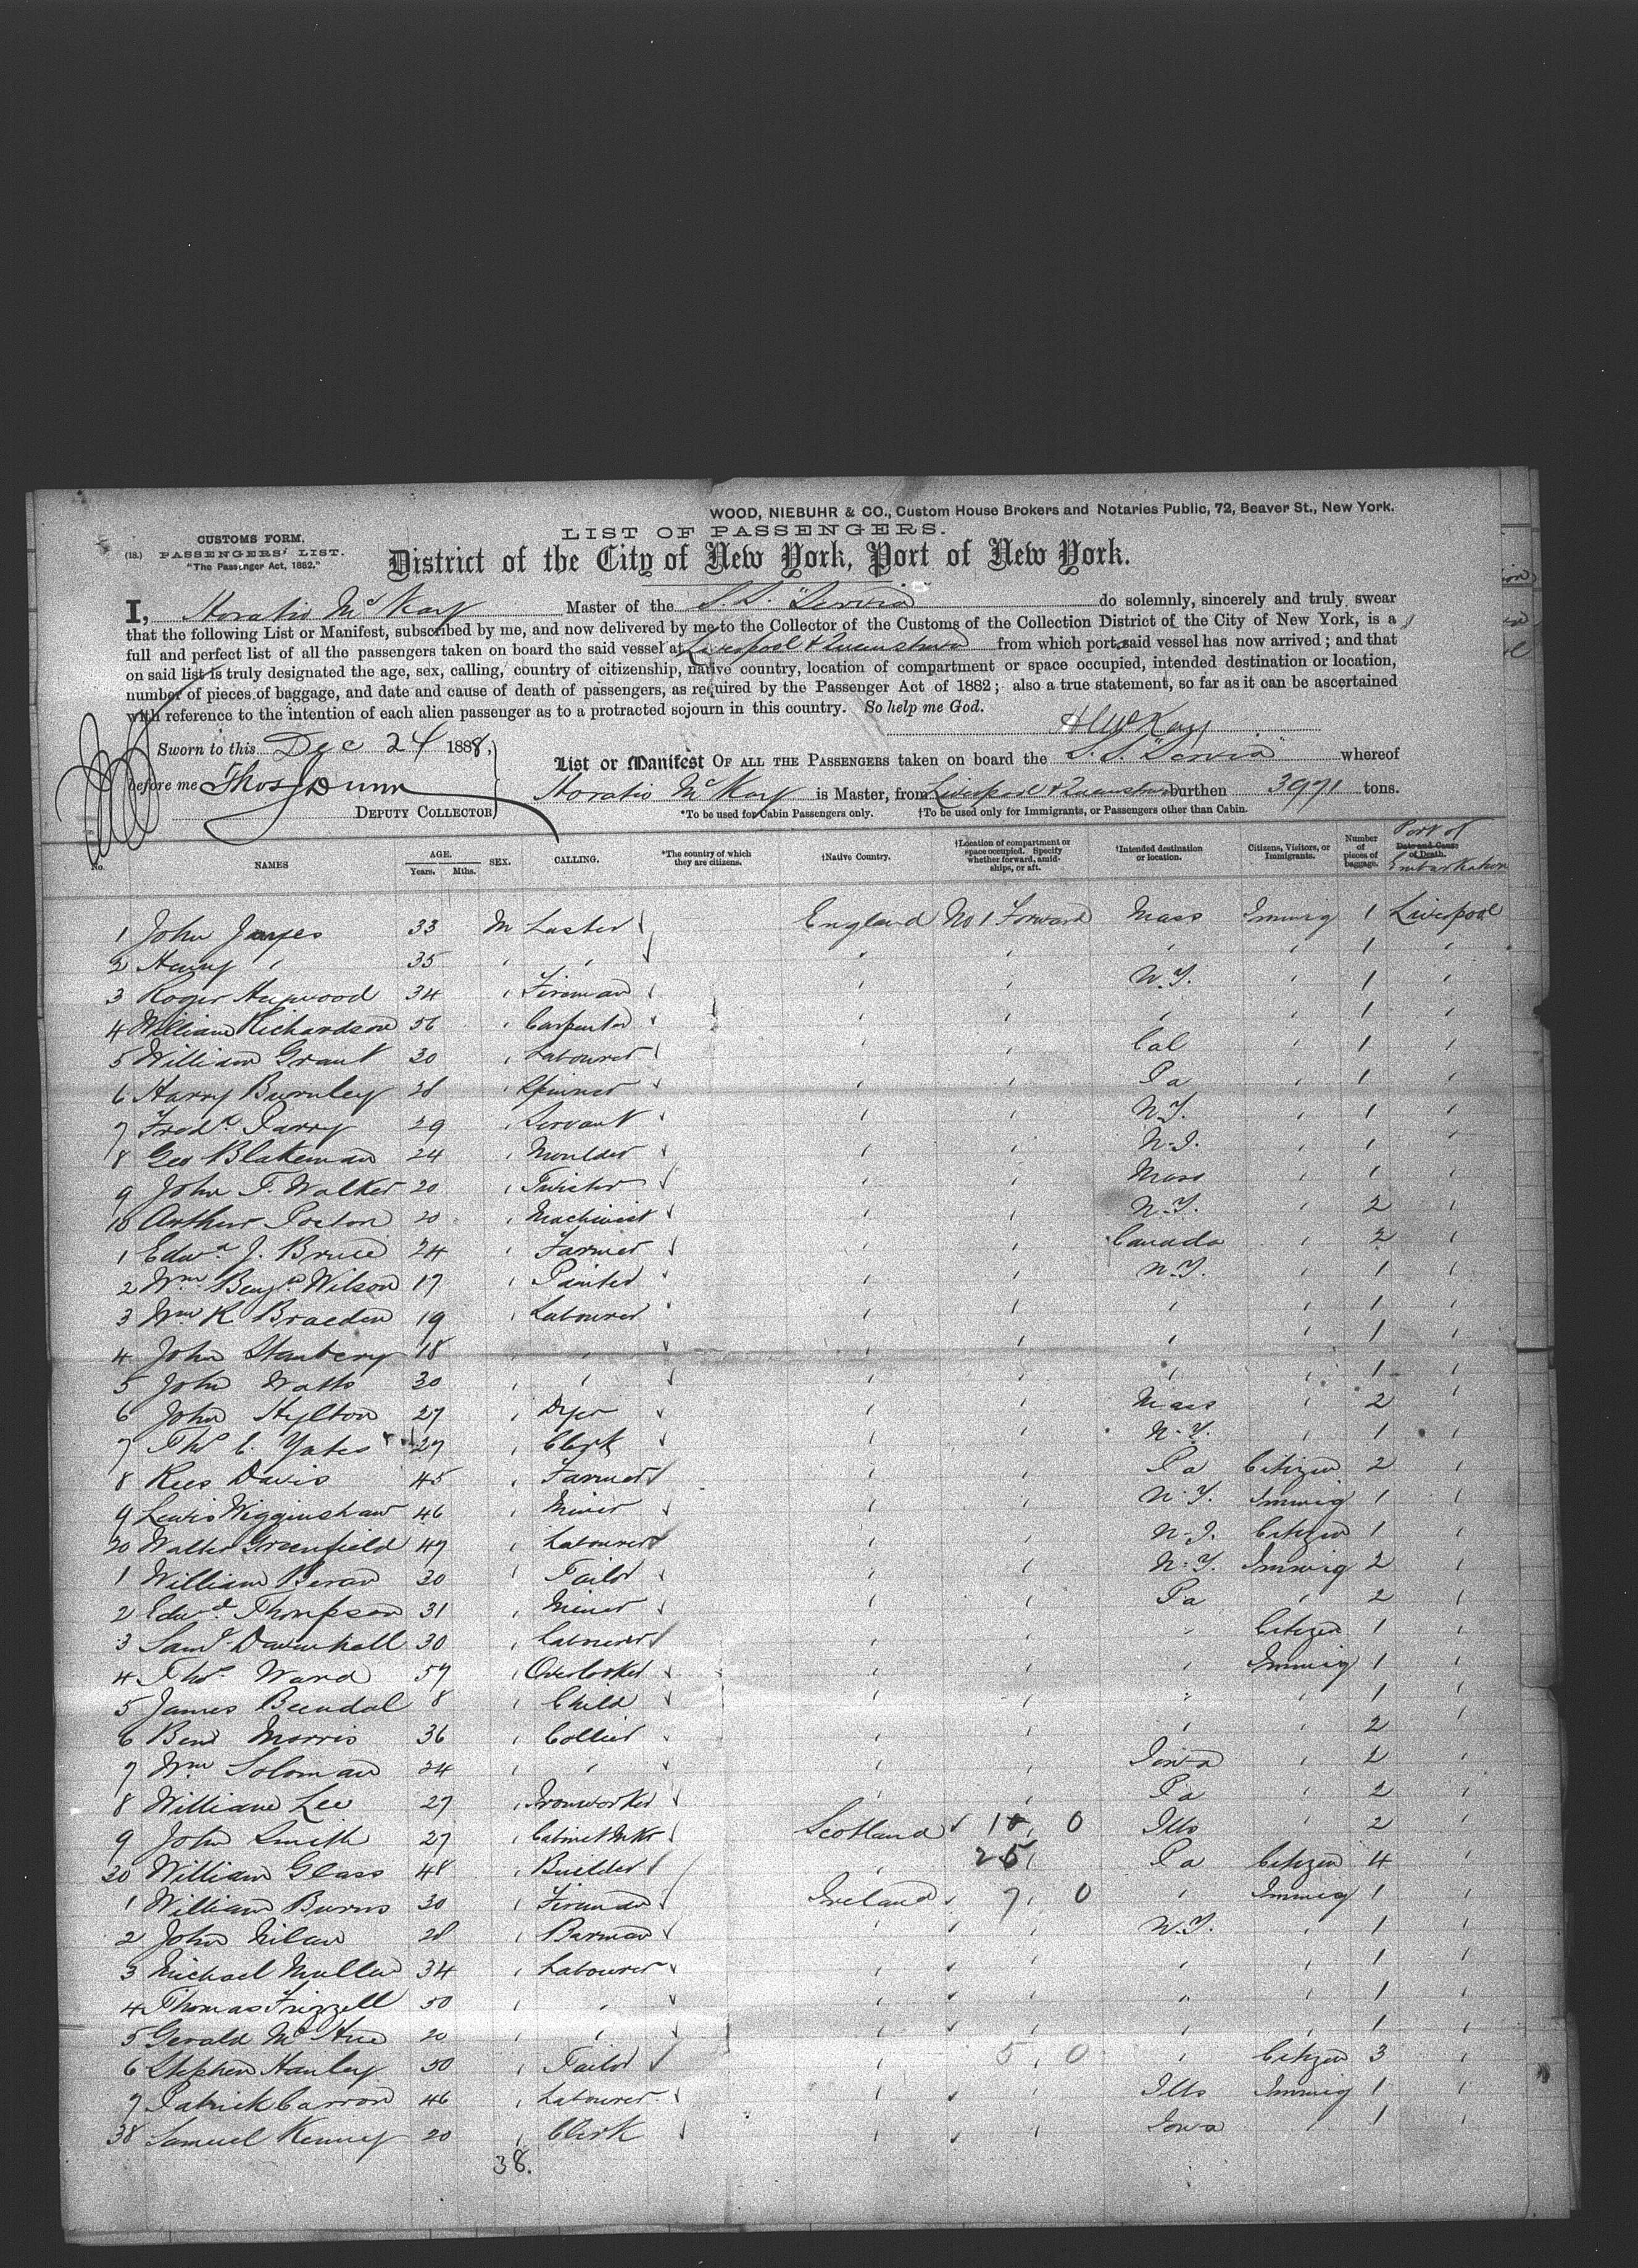 WOOD, NIEBUHR & CO., Custom House Brokers and Notaries Public, 72, Beaver St., New York.
LIST OF PASSENGERS.
CUSTOMS FORM.
(18.) PASSENGERS' LIST.
"The Passenger Act, 1882."
District of the City of New York, Port of New York.
I, Horatio McKay Master of the S.S. "Servia" do solemnly, sincerely and truly swear
that the following List or Manifest, subscribed by me, and now delivered by me to the Collector of the Customs of the Collection District of the City of New York, is a
full and perfect list of all the passengers taken on board the said vessel at Liverpool & Queenstown from which port said vessel has now arrived; and that
on said list is truly designated the age, sex, calling, country of citizenship, native country, location of compartment or space occupied, intended destination or location,
number of pieces of baggage, and date and cause of death of passengers, as required by the Passenger Act of 1882; also a true statement, so far as it can be ascertained
with reference to the intention of each alien passenger as to a protracted sojourn in this country. So help me God.
H McKay
Sworn to this Dec 24 1888.
before me Thos J Dunn
DEPUTY COLLECTOR
List or Manifest OF ALL THE PASSENGERS taken on board the S.S. "Servia" whereof
Horatio McKay is Master, from Liverpool & Queenstown burthen 3971 tons.
*To be used for Cabin Passengers only. †To be used only for Immigrants, or Passengers other than Cabin.
No. NAMES AGE. Years. Mths. SEX. CALLING. *The country of which they are citizens. †Native Country. †Location of compartment or space occupied. Specify whether forward, amidships, or aft. †Intended destination or location. Citizens, Visitors, or Immigrants. Number of pieces of baggage. Date and Cause of Death. Port of Embarkation
1 John Jaques 33 M Laster England No 1 Forward Mass Immig 1 Liverpool
2 Henry " 35 " " " " " " 1 "
3 Roger Haywood 34 " Fireman " " N.Y. " 1 "
4 William Richardson 56 " Carpenter " " " " 1 "
5 William Grant 30 " Labourer " " Cal " 1 "
6 Harry Burnley 28 " Spinner " " Pa " 1 "
7 Fredk Parry 29 " Servant " " N.Y. " 1 "
8 Geo Blakeman 24 " Moulder " " N.J. " 1 "
9 John T. Walker 20 " Twister " " Mass " 1 "
10 Arthur Poston 20 " Machinist " " N.Y. " 2 "
1 Edwd J. Bruce 24 " Farmer " " Canada " 2 "
2 Wm Benjn Wilson 17 " Painter " " N.Y. " 1 "
3 Wm R Braeden 19 " Labourer " " " " 1 "
4 John Stanbery 18 " " " " " " 1 "
5 John Watts 30 " " " " " " 1 "
6 John Hylton 27 " Dyer " " Mass " 2 "
7 Thos C. Yates 27 " Clerk " " N.Y. " 1 "
8 Rees Davis 45 " Farmer " " Pa Citizen 2 "
9 Lewis Wigginshaw 46 " Miner " " N.Y. Immig 1 "
20 Walter Greenfield 49 " Labourer " " N.J. Citizen 1 "
1 William Bevan 30 " Tailor " " N.Y. Immig 2 "
2 Edwd Thompson 31 " Miner " " Pa " 2 "
3 Saml Davenhall 30 " Labourer " " " Citizen 1 "
4 Thos Ward 57 " Overlooker " " " Immig 1 "
5 James Bendal 8 " Child " " " " 1 "
6 Benj Morris 36 " Collier " " " " 2 "
7 Wm Soloman 24 " " " " Iowa " 2 "
8 William Lee 27 " Ironworker " " Pa " 2 "
9 John Smith 27 " Cabinet Mkr Scotland " 10 0 Ills " 2 "
30 William Glass 48 " Builder " 25 Pa Citizen 4 "
1 William Burns 30 " Fireman Ireland 7 0 " Immig 1 "
2 John Nilan 28 " Barman " " N.Y. " 1 "
3 Michael Mullen 34 " Labourer " " " " 1 "
4 Thomas Frizzell 50 " " " " " " 1 "
5 Gerald McHue 20 " " " " " " 1 "
6 Stephen Hanley 50 " Tailor " 5 0 " Citizen 3 "
7 Patrick Carron 46 " Labourer " " Ills Immig 1 "
38 Samuel Kenney 20 " Clerk " " Iowa " 1 "
38.